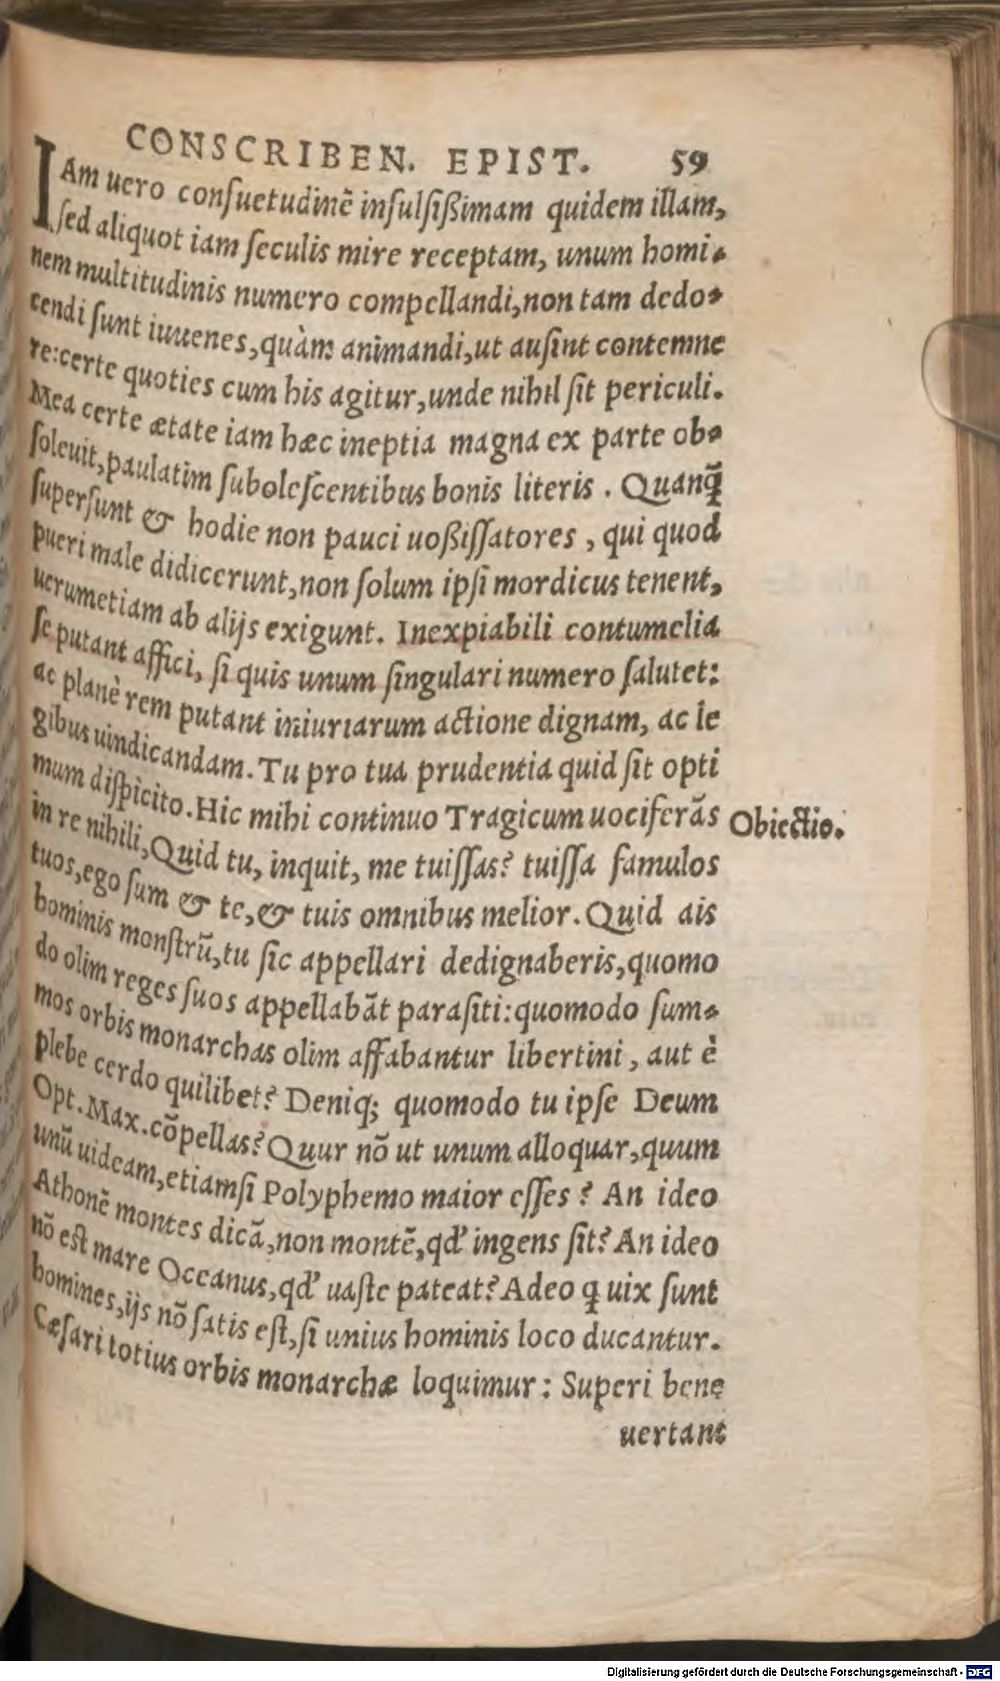 CONSCRIBEN. EPIST. 59
IAm uero conſuetudinē inſulſißimam quidem illam,
ſed aliquot iam ſeculis mire receptam, unum homi-
nem multitudinis numero compellandi, non tam dedo-
cendi ſunt iuuenes, quàm animandi, ut auſint contemne
re: certe quoties cum his agitur, unde nihil ſit periculi.
Mea certe ætate iam hæc ineptia magna ex parte ob-
ſoleuit, paulatim ſuboleſcentibus bonis literis. Quanꝗ̃
ſuperſunt & hodie non pauci uoßiſſatores, qui quod
pueri male didicerunt, non ſolum ipſi mordicus tenent,
uerumetiam ab alijs exigunt. Inexpiabili contumelia
ſe putant affici, ſi quis unum ſingulari numero ſalutet:
ac planè rem putant iniuriarum actione dignam, ac le
gibus uindicandam. Tu pro tua prudentia quid ſit opti
mum diſpicito. Hic mihi continuo Tragicum uociferās
Obiectio.
in re nihili, Quid tu, inquit, me tuiſſas? tuiſſa famulos
tuos, ego ſum & te, & tuis omnibus melior. Quid ais
hominis monſtrū, tu ſic appellari dedignaberis, quomo
do olim reges ſuos appellabāt paraſiti: quomodo ſum-
mos orbis monarchas olim affabantur libertini, aut è
plebe cerdo quilibet? Deniq; quomodo tu ipſe Deum
Opt. Max. cōpellas? Quur nō ut unum alloquar, quum
unū uideam, etiamſi Polyphemo maior eſſes? An ideo
Athonē montes dicā, non montē, qd' ingens ſit? An ideo
nō eſt mare Oceanus, qd' uaſte pateat? Adeo ꝗ uix ſunt
homines, ijs nō ſatis eſt, ſi unius hominis loco ducantur.
Cæſari totius orbis monarchæ loquimur: Superi bene
uertant
Digitalisierung gefördert durch die Deutsche Forschungsgemeinschaft - DFG